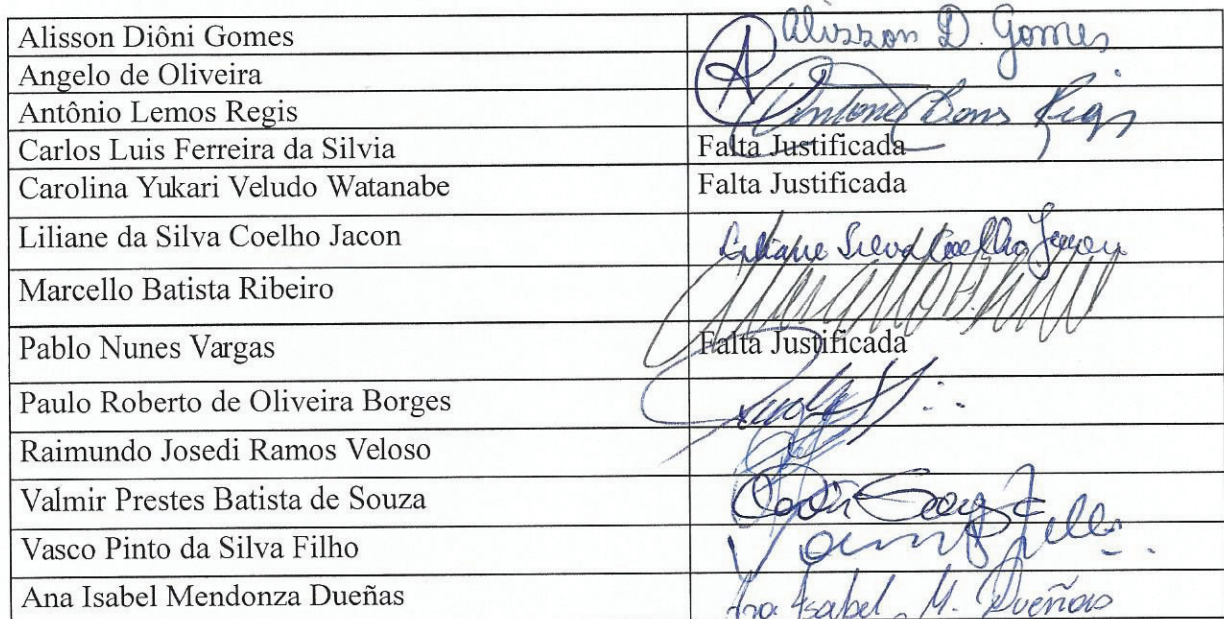 Alisson Diôni Gomes Alisson D. Gomes
Angelo de Oliveira A
Antônio Lemos Regis Regis
Carlos Luis Ferreira da Silvia Falta Justificada
Carolina Yukari Veludo Watanabe Falta Justificada
Liliane da Silva Coelho Jacon Liliane Silva Coelho Jacon
Marcello Batista Ribeiro
Pablo Nunes Vargas Falta Justificada
Paulo Roberto de Oliveira Borges
Raimundo Josedi Ramos Veloso
Valmir Prestes Batista de Souza
Vasco Pinto da Silva Filho
Ana Isabel Mendonza Dueñas Ana Isabel M. Dueñas